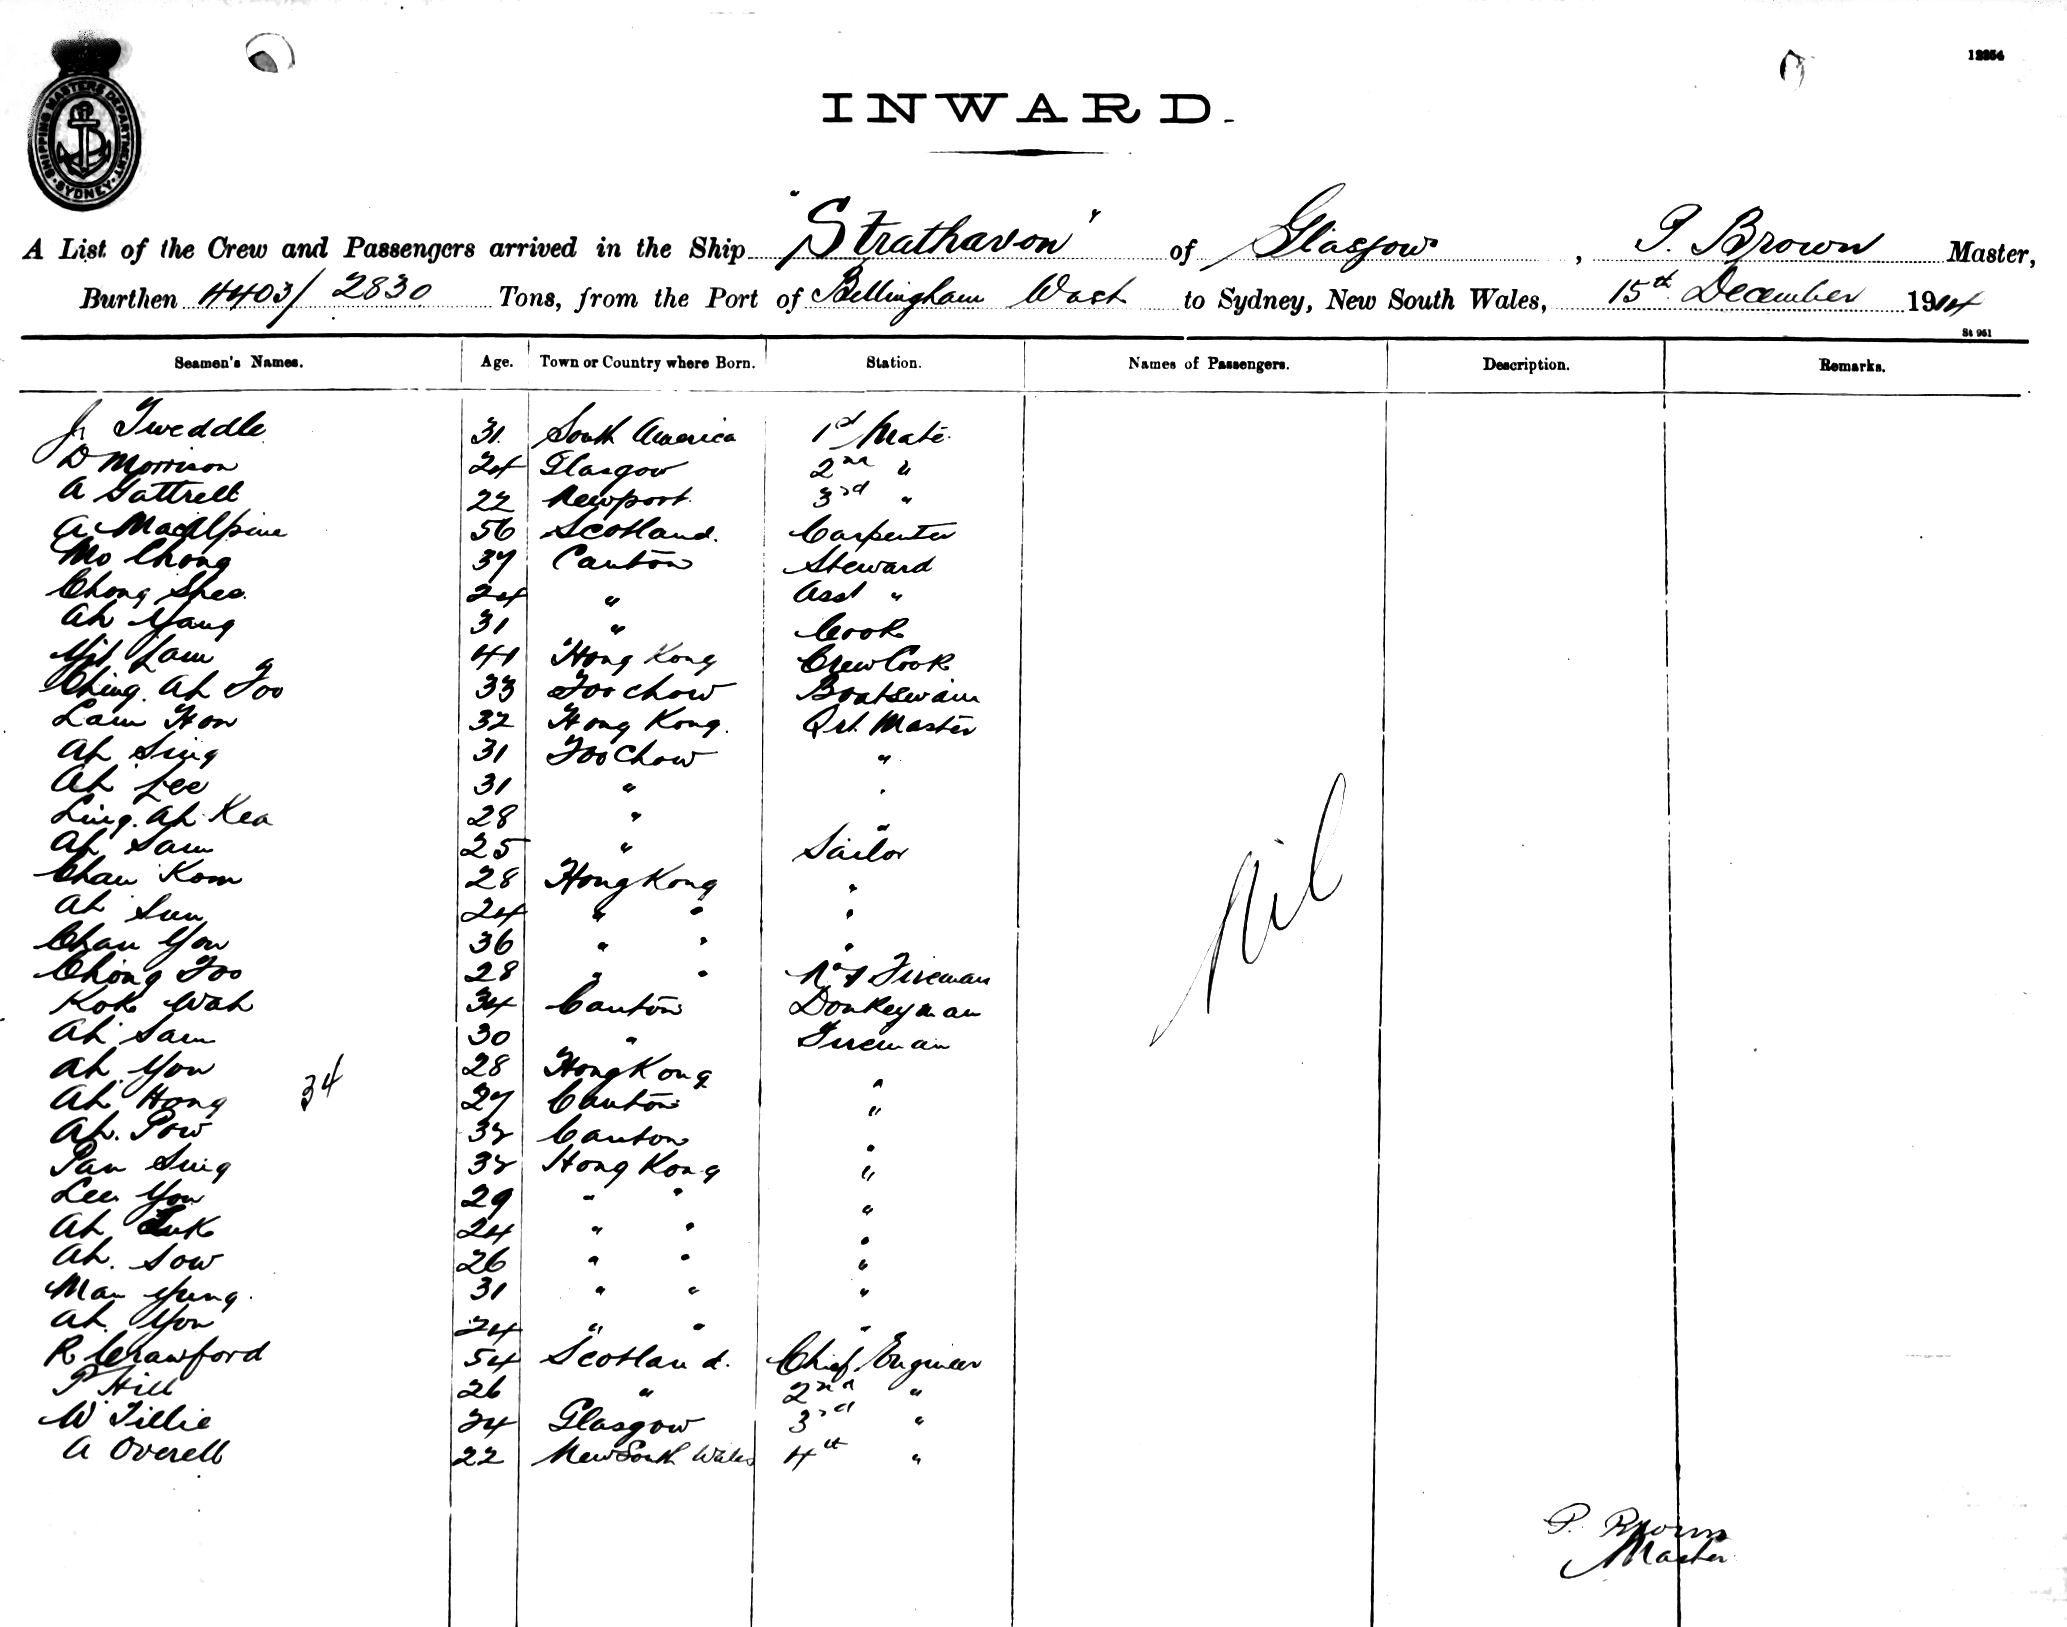 12254
SHIPPING MASTERS DEPARTMENT
SYDNEY
INWARD.
A List of the Crew and Passengers arrived in the Ship "Strathavon" of Glasgow, P. Brown Master,
Burthen 4403/2830 Tons, from the Port of Bellingham Wash to Sydney, New South Wales, 15th December 1914
St 961
Seamen's Names. Age. Town or Country where Born. Station. Names of Passengers. Description. Remarks.
J. Tweddle 31 South America 1st Mate
D Morrison 24 Glasgow 2nd "
A Gattrell 22 Newport 3rd "
A MacAlpine 56 Scotland. Carpenter
Mo Chong 37 Canton Steward
Chong Shee 24 " Asst "
Ah Yang 31 " Cook
Yit Lam 41 Hong Kong Crew Cook
Ching. Ah Foo 33 Foochow Boatswain
Lam Hon 32 Hong Kong. Qrt. Master
Ah Sing 31 Foochow "
Ah Lee 31 " "
Ling. Ah Kea 28 " "
Ah Sam 25 " Sailor
Chan Kom 28 Hong Kong "
Ah Sun 24 " " "
Chan You 36 " " "
Chong Foo 28 " " No 1 Fireman
Kok Wah 34 Canton Donkeyman
Ah Sam 30 " Fireman
Ah You 28 Hong Kong "
Ah Hong 34 27 Canton "
Ah. Pow 32 Canton "
Pan Sing 32 Hong Kong "
Lee You 29 " " "
Ah Luk 24 " " "
Ah. Sow 26 " " "
Man Yung. 31 " " "
Ah. You 24 " " "
R Crawford 54 Scotland. Chief Engineer
P Hill 26 " 2nd "
W Tillie 24 Glasgow 3rd "
A Overell 22 New South Wales 4th "
Nil
P. Brown
Master